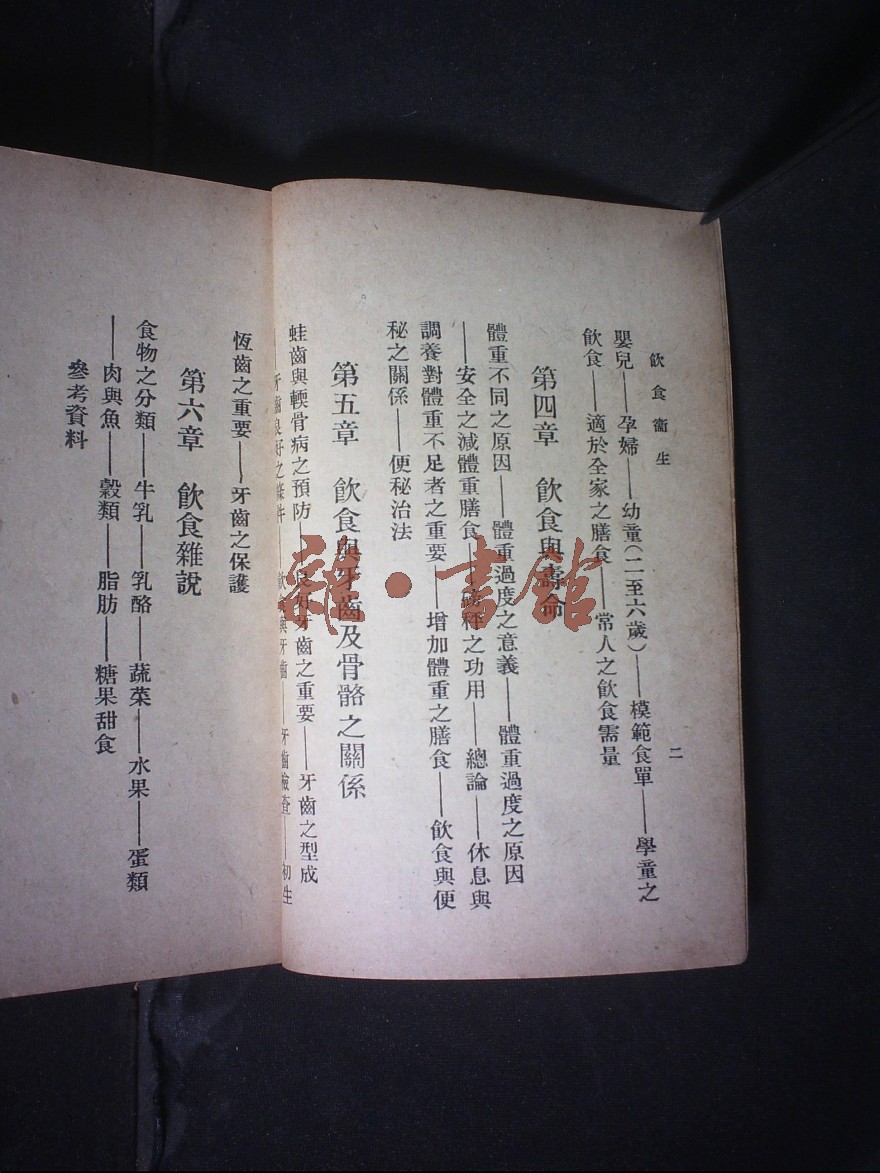 飲食衞生
二
嬰兒——孕婦——幼童(二至六歲)——模範食單——學童之
飲食——適於全家之膳食——常人之飲食需量
第四章 飲食與壽命
體重不同之原因——體重過度之意義——體重過度之原因
——安全之減體重膳食——磅秤之功用——總論——休息與
調養對體重不足者之重要——增加體重之膳食——飲食與便
秘之關係——便秘治法
第五章 飲食與牙齒及骨骼之關係
蛀齒與輭骨病之預防——良好牙齒之重要——牙齒之型成
——牙齒良好之條件——飲食與牙齒——牙齒檢查——初生
恆齒之重要——牙齒之保護
第六章 飲食雜説
食物之分類——牛乳——乳酪——蔬菜——水果——蛋類
——肉與魚——穀類——脂肪——糖果甜食
參考資料
雜·書館